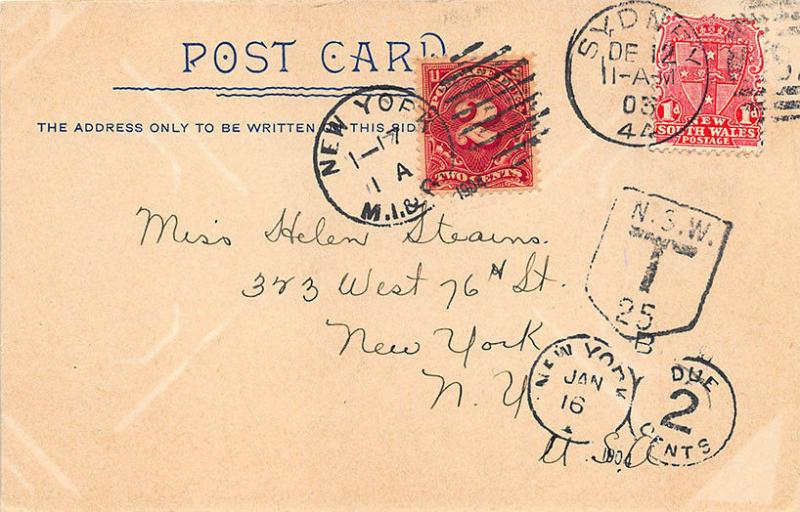 POST CARD
THE ADDRESS ONLY TO BE WRITTEN ON THIS SIDE
NEW YORK
1-17
11 A
M.I.&R.D.
1904
2
TWO CENTS
SYDNEY
DE 12
11-AM
03
4A
1d NEW 1d
SOUTH WALES
POSTAGE
N.S.W.
T
25
B
Miss Helen Stearns.
323 West 76th St.
New York
N. Y
U. S. A
NEW YORK
JAN
16
1904
DUE
2
CENTS